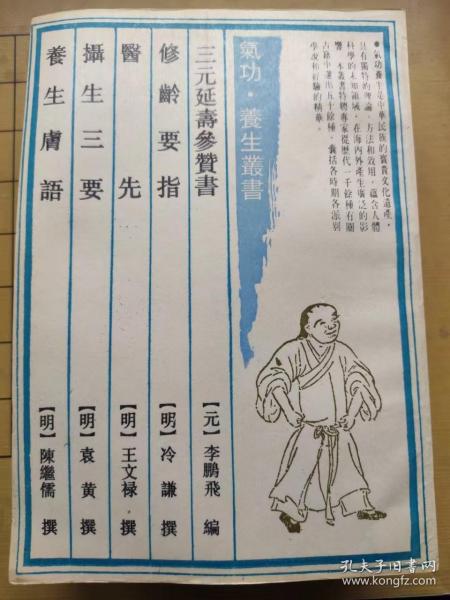 ●氣功養生是中華民族的寶貴文化遺產，
具有獨特的理論、方法和效用，蘊含人體
科學的未知領域，在海內外產生廣泛的影
響。本叢書特聘專家從歷代一千餘種有關
古籍中選出五十餘種，囊括各時期各派別
學說和經驗的精華。
氣功·養生叢書
三元延壽參贊書 【元】李鵬飛 編
修齡要指 【明】冷謙 撰
醫先 【明】王文禄 撰
攝生三要 【明】袁黃 撰
養生膚語 【明】陳繼儒 撰
孔夫子旧书网
www.kongfz.com